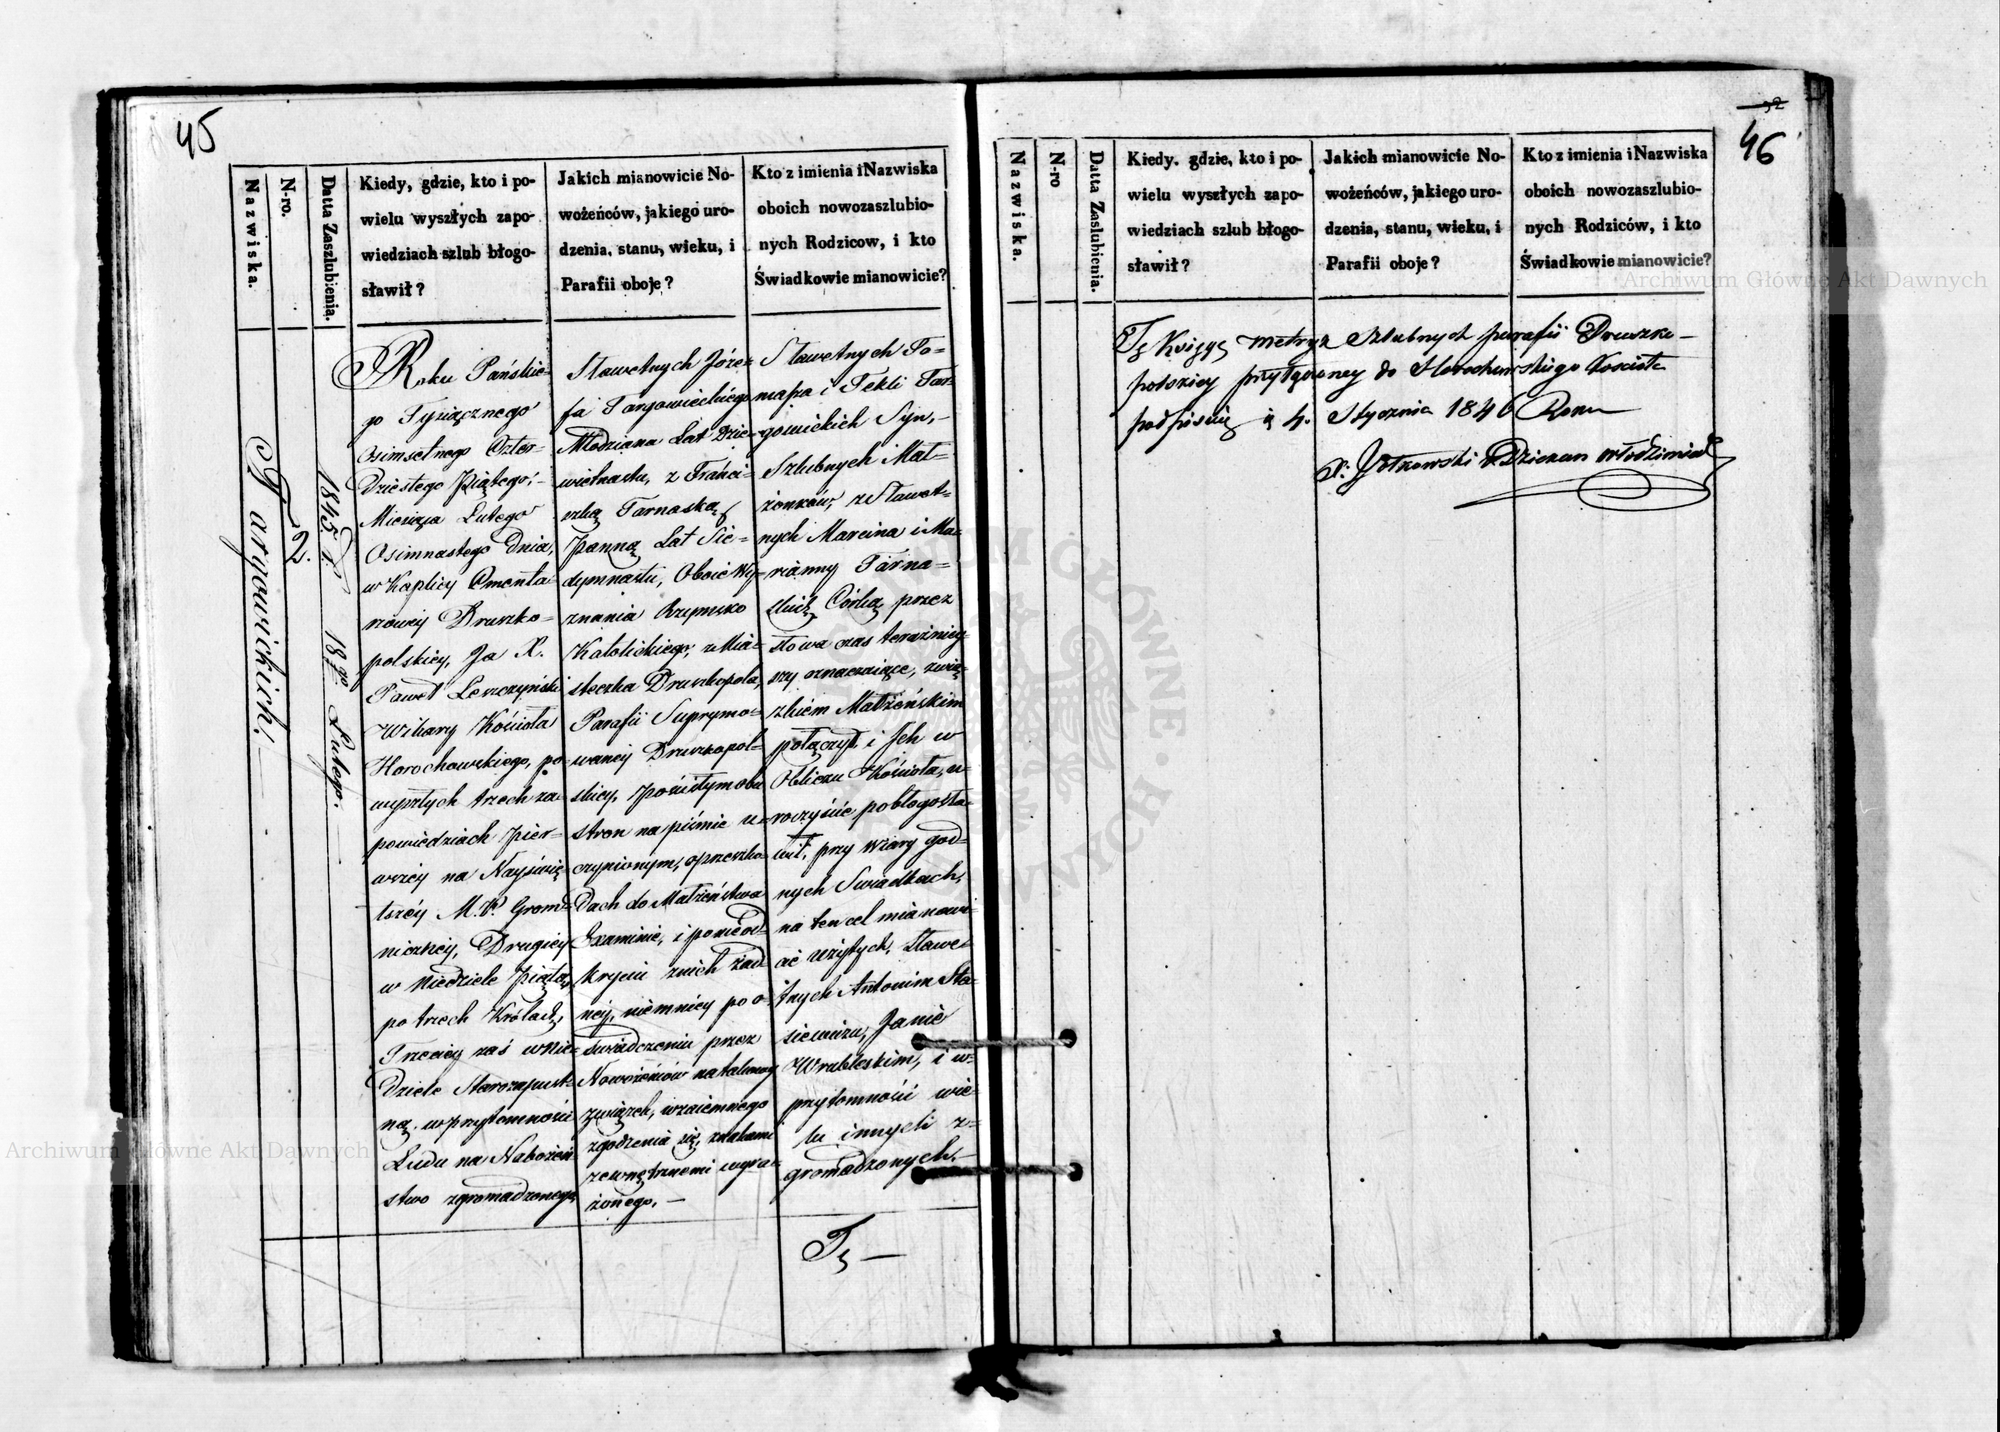 45
Nazwiska.
N-ro.
Datta Zaszlubienią.
Kiedy, gdzie, kto i po-
wielu wyszłych zapo-
wiedziach szlub błogo-
sławił?
Jakich mianowicie No-
wożeńców, jakiego uro-
dzenia, stanu, wieku, i
Parafii oboje?
Kto z imienia i Nazwiska
oboich nowozaszlubio-
nych Rodzicow, i kto
Świadkowie mianowicie?
Targowickich.
2.
1845 r. 18go Lutego.
Roku Pańskie-
go Tysiącznego
Osimsetnego Czter-
Dziestego Piątego,
Miesiąca Lutego
Osimnastego Dnia,
w Kaplicy Cmenta-
rzowey Druszko-
polskiey, Ja X.
Paweł Leszczyński
Wikary Kościoła
Horochowskiego, po
wyszłych trzech za-
powiedziach Pier-
wszey na Nayświę-
tszéy M. P. Grom-
niczney, Drugiey
w Niedziele Piątą,
po trzech Królach,
Trzeciey zaś w Nie-
Dziele Starozapust-
ną, w przytomności
Ludu na Nabożeń-
stwo zgromadzonego
Sławetnych Józe-
fa Targowickiego
Młodziana Lat Dzie-
wietnastu, z Franci-
szką Tarnaską
Panną Lat Sie-
dymnastu, Oboie Wy-
znania Rzymsko
Katolickiego, z Mia-
steczka Druszkopola,
Parafii Suprymo-
waney Druszkopol-
skiey, Pościstym obu
stron na piśmie u-
czynionym, o przeszko-
Dach do Małżeństwa
Examinie, i po nieod-
kryciu z nich żad-
ney, niemniey po o-
świadczeniu przez
Nowożeńców na takowy
związek, wzaiemnego
zgodzenia się, znakami
zewnętrznemi wyra-
żonego. —
Sławetnych To-
masza i Tekli Tar-
gowickich Syn,
Szlubnych Mał-
żonków, z Sławet-
nych Marcina i Ma-
rianny Tarna-
skich Córką przez
słowa czas teraźniey-
szy oznaczaiące, zwią-
zkiem Małżeńskim
połączył i Ich w
Obliczu Kościoła, u-
roczyście pobłogosła-
wił, przy wiary god-
nych Swiadkach,
na ten cel mianowi-
cie użytych, Sławe-
tnych Antonim Sta-
siewiczu, Janie
Wrubleskim, i w
przytomności wie-
lu innych z-
gromadzonych. —
Tę —
52
46
Nazwiska.
N-ro
Datta Zaslubienia.
Kiedy. gdzie, kto i po-
wielu wyszłych zapo-
wiedziach szlub błogo-
sławił?
Jakich mianowicie No-
wożeńców, jakiego uro-
dzenia, stanu, wieku, i
Parafii oboje?
Kto z imienia i Nazwiska
oboich nowozaszlubio-
nych Rodziców, i kto
Świadkowie mianowicie?
Tę Księgę metryk Szlubnych parafii Druszko-
polskiey przyłączoney do Horochowskiego Kościoła
podpisuię 4. Stycznia 1846 Roku
Dziekan Włodzimirs
Archiwum Główne Akt Dawnych
Archiwum Główne Akt Dawnych